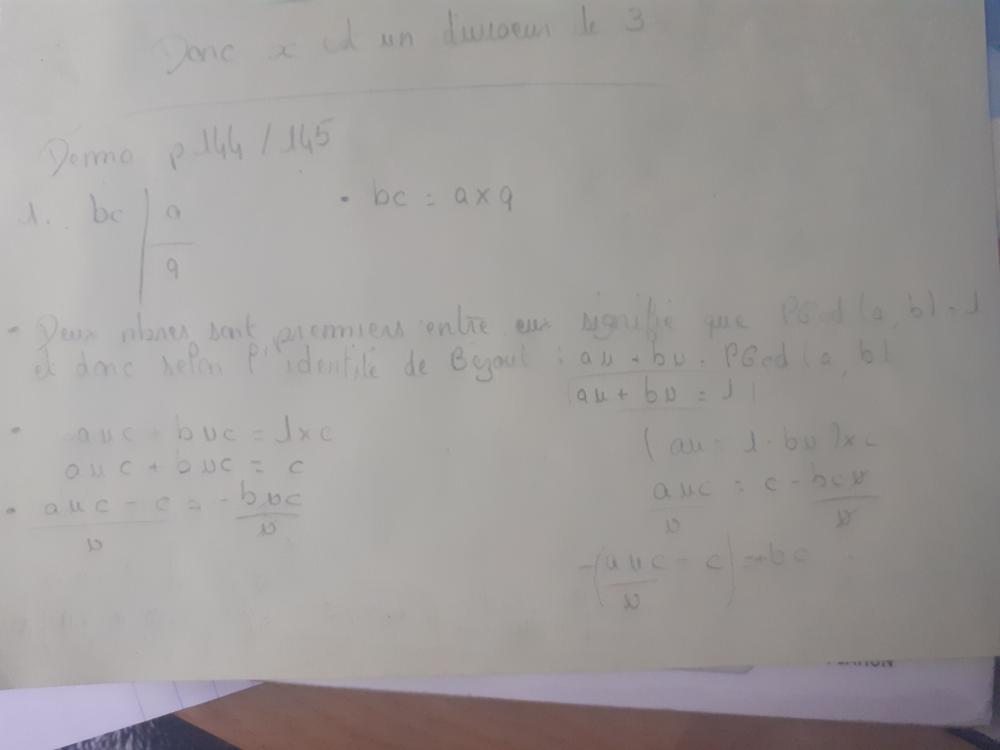 Donc x est un diviseur de 3
Demo p 144 / 145
1. bc | a
q
• bc = a x q
• Deux nbres sont premiers entre eux signifie que PGcd (a, b) = 1
et donc selon l'identité de Bézout : au + bv = PGcd (a, b)
au + bv = 1
• auc + bvc = 1 x c
auc + bvc = c
• auc - c = - bvc
v v
(au = 1 - bv) x c
auc = c - bcv
v v
-(auc - c) = +bc
v